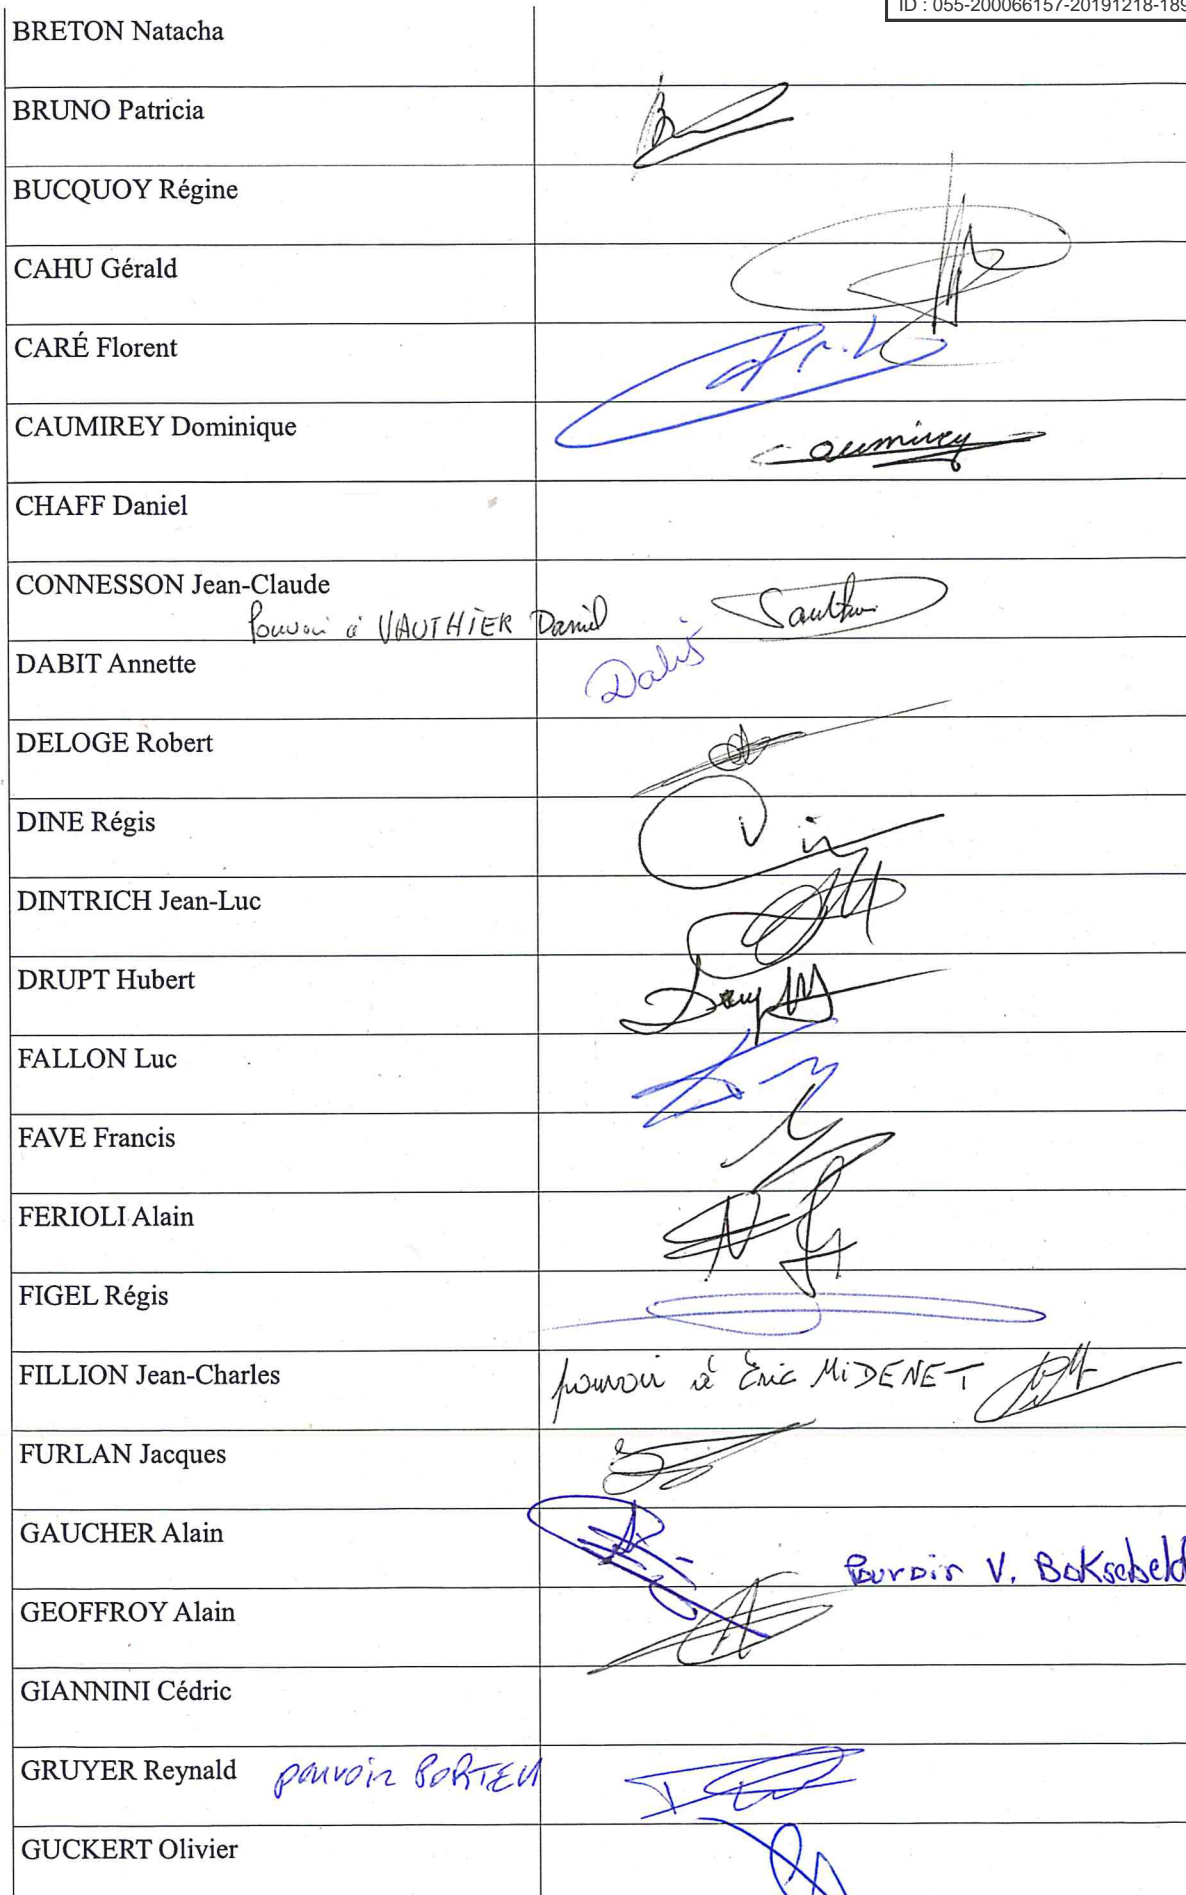 ID : 055-200066157-20191218-189
BRETON Natacha
BRUNO Patricia
BUCQUOY Régine
CAHU Gérald
CARÉ Florent
CAUMIREY Dominique
Caumirey
CHAFF Daniel
CONNESSON Jean-Claude
Pouvoir à VAUTHIER Daniel
DABIT Annette
Dabit
DELOGE Robert
DINE Régis
DINTRICH Jean-Luc
DRUPT Hubert
FALLON Luc
FAVE Francis
FERIOLI Alain
FIGEL Régis
FILLION Jean-Charles
pouvoir à Éric MIDENET
FURLAN Jacques
GAUCHER Alain
Pouvoir V. Boksebeld
GEOFFROY Alain
GIANNINI Cédric
GRUYER Reynald pouvoir PORTEU
GUCKERT Olivier